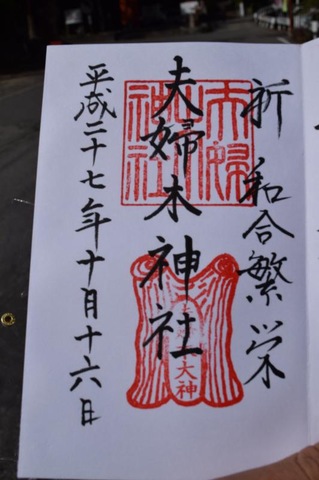 祈 和合繁栄
夫婦木神社
平成二十七年十月十六日
夫婦木神社
大神